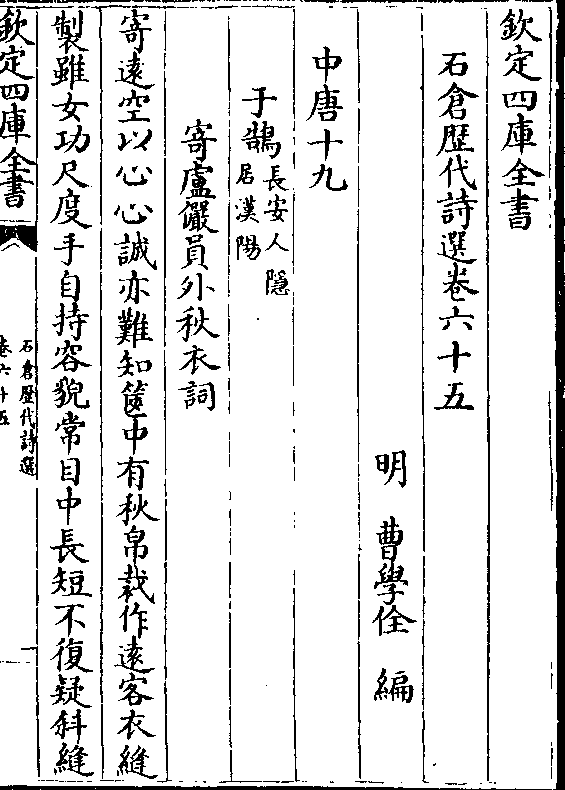 欽定四庫全書
石倉歴代詩選卷六十五
明　曹學佺　編
中唐十九
于鵠長安人隱
居漢陽
寄盧儼員外秋衣詞
寄遠空以心心誠亦難知篋中有秋帛裁作遠客衣縫
製雖女功尺度手自持容貌常目中長短不復疑斜縫
欽定四庫全書
石倉歴代詩選
卷六十五
一